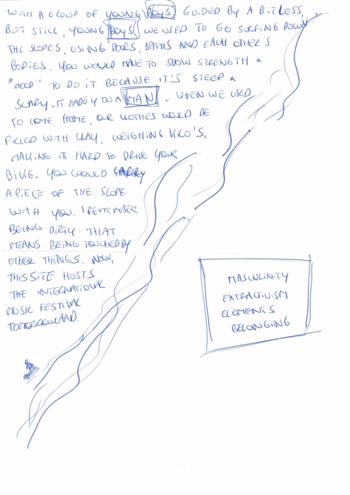 WITH A GROUP OF YOUNG BOYS GUIDED BY A BIT LESS,
BUT STILL, YOUNG BOYS WE USED TO GO SURFING DOWN
THE SLOPES, USING DOORS, BATHS AND EACH OTHER'S
BODIES. YOU WOULD HAVE TO SHOW STRENGTH &
"MOOD" TO DO IT BECAUSE IT'S STEEP &
SCARY. IT MADE YOU A MAN. WHEN WE USED
TO COME HOME, OUR CLOTHES WOULD BE
FILLED WITH CLAY, WEIGHING KILO'S,
MAKING IT HARD TO DRIVE YOUR
BIKE. YOU WOULD CARRY
A PIECE OF THE SLOPE
WITH YOU. I REMEMBER
BEING DIRTY: THAT
MEANS BEING TOUCHED BY
OTHER THINGS. NOW,
THIS SITE HOSTS
THE INTERNATIONAL
MUSIC FESTIVAL
TOMORROWLAND.
MASCULINITY
EXTRACTIVISM
ELEMENTS
BELONGING